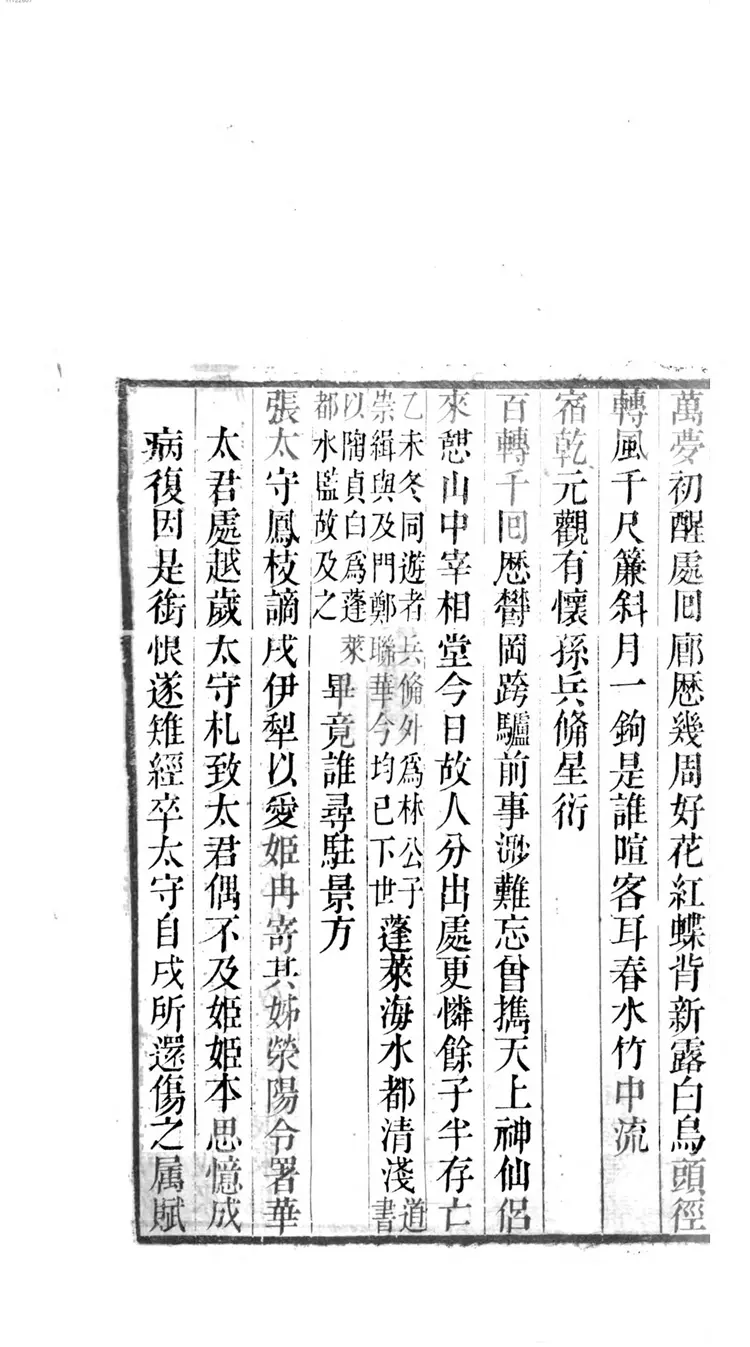 萬夢初醒處回廊歷幾周好花紅蝶背新露白烏頭徑
轉風千尺簾斜月一鉤是誰喧客耳春水竹中流
宿乾元觀有懷孫兵備星衍
百轉千回歷鬱岡跨驢前事渺難忘曾攜天上神仙侶
來憇山中宰相堂今日故人分出處更憐餘子半存亡
乙未冬同遊者兵備外爲林公子
崇緝與及門鄭聯華今均已下世
蓬萊海水都清淺
道
書
以陶貞白爲蓬萊
都水監故及之
畢竟誰尋駐景方
張太守鳳枝謫戍伊犁以愛姬冉寄其姊滎陽令署華
太君處越歲太守札致太君偶不及姬姬本思憶成
病復因是銜恨遂雉經卒太守自戍所還傷之属賦